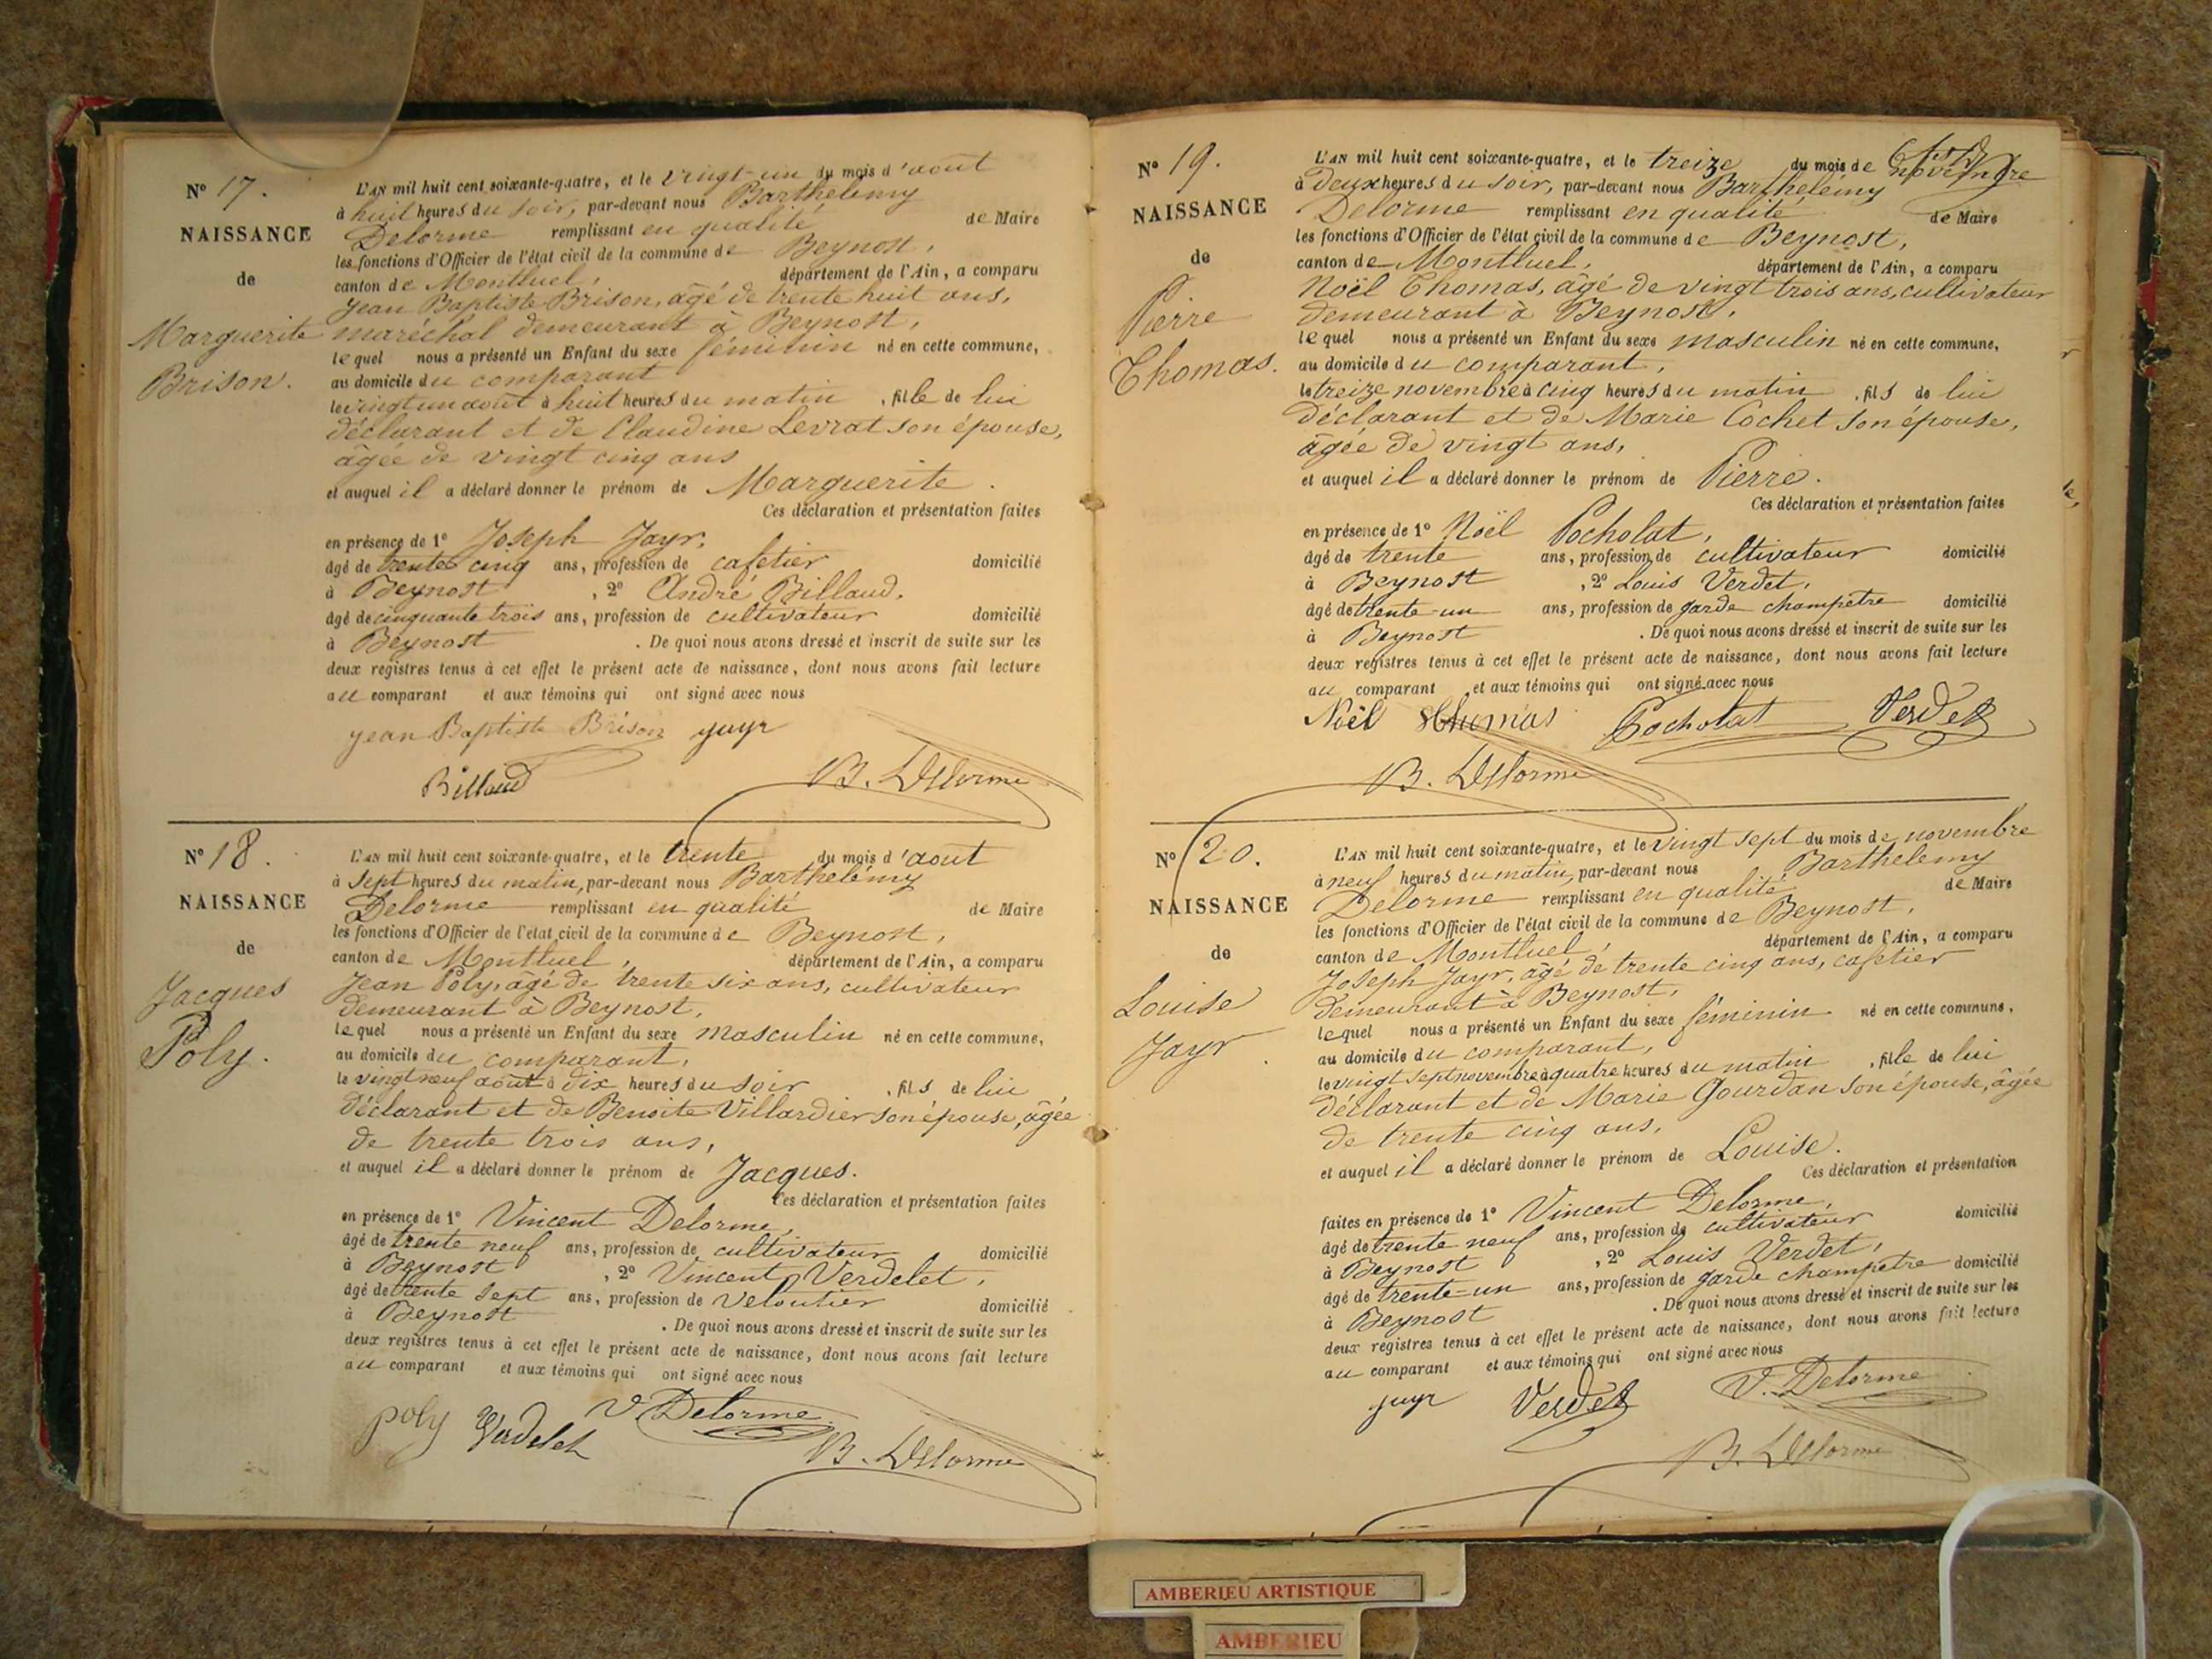 N° 17.
NAISSANCE
de
Marguerite
Brison.
L'AN mil huit cent soixante-quatre, et le vingt-un du mois d'août
à huit heures du soir, par-devant nous Barthelémy
Delorme remplissant en qualité de Maire
les fonctions d'Officier de l'état civil de la commune de Beynost,
canton de Montluel, département de l'Ain, a comparu
Jean Baptiste Brison, âgé de trente huit ans,
maréchal demeurant à Beynost,
lequel nous a présenté un Enfant du sexe féminin né en cette commune,
au domicile du comparant
le vingt un août à huit heures du matin, fille de lui
déclarant et de Claudine Levrat son épouse,
âgée de vingt cinq ans
et auquel il a déclaré donner le prénom de Marguerite.
Ces déclaration et présentation faites
en présence de 1° Joseph Jayr,
âgé de trente cinq ans, profession de cafetier domicilié
à Beynost, 2° André Billaud,
âgé de cinquante trois ans, profession de cultivateur domicilié
à Beynost. De quoi nous avons dressé et inscrit de suite sur les
deux registres tenus à cet effet le présent acte de naissance, dont nous avons fait lecture
au comparant et aux témoins qui ont signé avec nous
Jean Baptiste Brison jayr
Billaud B. Delorme
N° 18.
NAISSANCE
de
Jacques
Poly.
L'AN mil huit cent soixante-quatre, et le trente du mois d'août
à sept heures du matin, par-devant nous Barthelémy
Delorme remplissant en qualité de Maire
les fonctions d'Officier de l'état civil de la commune de Beynost,
canton de Montluel, département de l'Ain, a comparu
Jean Poly, âgé de trente six ans, cultivateur
demeurant à Beynost,
lequel nous a présenté un Enfant du sexe masculin né en cette commune,
au domicile du comparant,
le vingt neuf août à dix heures du soir, fils de lui
déclarant et de Benoite Villardier son épouse, âgée
de trente trois ans,
et auquel il a déclaré donner le prénom de Jacques.
Ces déclaration et présentation faites
en présence de 1° Vincent Delorme,
âgé de trente neuf ans, profession de cultivateur domicilié
à Beynost, 2° Vincent Verdelet,
âgé de trente sept ans, profession de veloutier domicilié
à Beynost. De quoi nous avons dressé et inscrit de suite sur les
deux registres tenus à cet effet le présent acte de naissance, dont nous avons fait lecture
au comparant et aux témoins qui ont signé avec nous
poly Verdelet V. Delorme
B. Delorme
N° 19.
NAISSANCE
de
Pierre
Thomas.
L'AN mil huit cent soixante-quatre, et le treize du mois de novembre
à deux heures du soir, par-devant nous Barthelémy
Delorme remplissant en qualité de Maire
les fonctions d'Officier de l'état civil de la commune de Beynost,
canton de Montluel, département de l'Ain, a comparu
Noël Thomas, âgé de vingt trois ans, cultivateur
demeurant à Beynost,
lequel nous a présenté un Enfant du sexe masculin né en cette commune,
au domicile du comparant,
le treize novembre à cinq heures du matin, fils de lui
déclarant et de Marie Cochet son épouse,
âgée de vingt ans,
et auquel il a déclaré donner le prénom de Pierre.
Ces déclaration et présentation faites
en présence de 1° Noël Pocholat,
âgé de trente ans, profession de cultivateur domicilié
à Beynost, 2° Louis Verdet,
âgé de trente-un ans, profession de garde champêtre domicilié
à Beynost. De quoi nous avons dressé et inscrit de suite sur les
deux registres tenus à cet effet le présent acte de naissance, dont nous avons fait lecture
au comparant et aux témoins qui ont signé avec nous
Noël thumas Pocholat Verdet
B. Delorme
N° 20.
NAISSANCE
de
Louise
Jayr.
L'AN mil huit cent soixante-quatre, et le vingt sept du mois de novembre
à neuf heures du matin, par-devant nous Barthelemy
Delorme remplissant en qualité de Maire
les fonctions d'Officier de l'état civil de la commune de Beynost,
canton de Montluel, département de l'Ain, a comparu
Joseph Jayr, âgé de trente cinq ans, cafetier
demeurant à Beynost,
lequel nous a présenté un Enfant du sexe féminin né en cette commune,
au domicile du comparant,
le vingt sept novembre à quatre heures du matin, fille de lui
déclarant et de Marie Gourdan son épouse, âgée
de trente cinq ans,
et auquel il a déclaré donner le prénom de Louise.
Ces déclaration et présentation
faites en présence de 1° Vincent Delorme,
âgé de trente neuf ans, profession de cultivateur domicilié
à Beynost, 2° Louis Verdet,
âgé de trente-un ans, profession de garde champetre domicilié
à Beynost. De quoi nous avons dressé et inscrit de suite sur les
deux registres tenus à cet effet le présent acte de naissance, dont nous avons fait lecture
au comparant et aux témoins qui ont signé avec nous
jayr Verdet V. Delorme
B. Delorme
AMBERIEU ARTISTIQUE
AMBERIEU